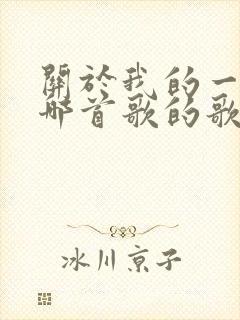 關於我的一
哪首歌的歌
冰川京子